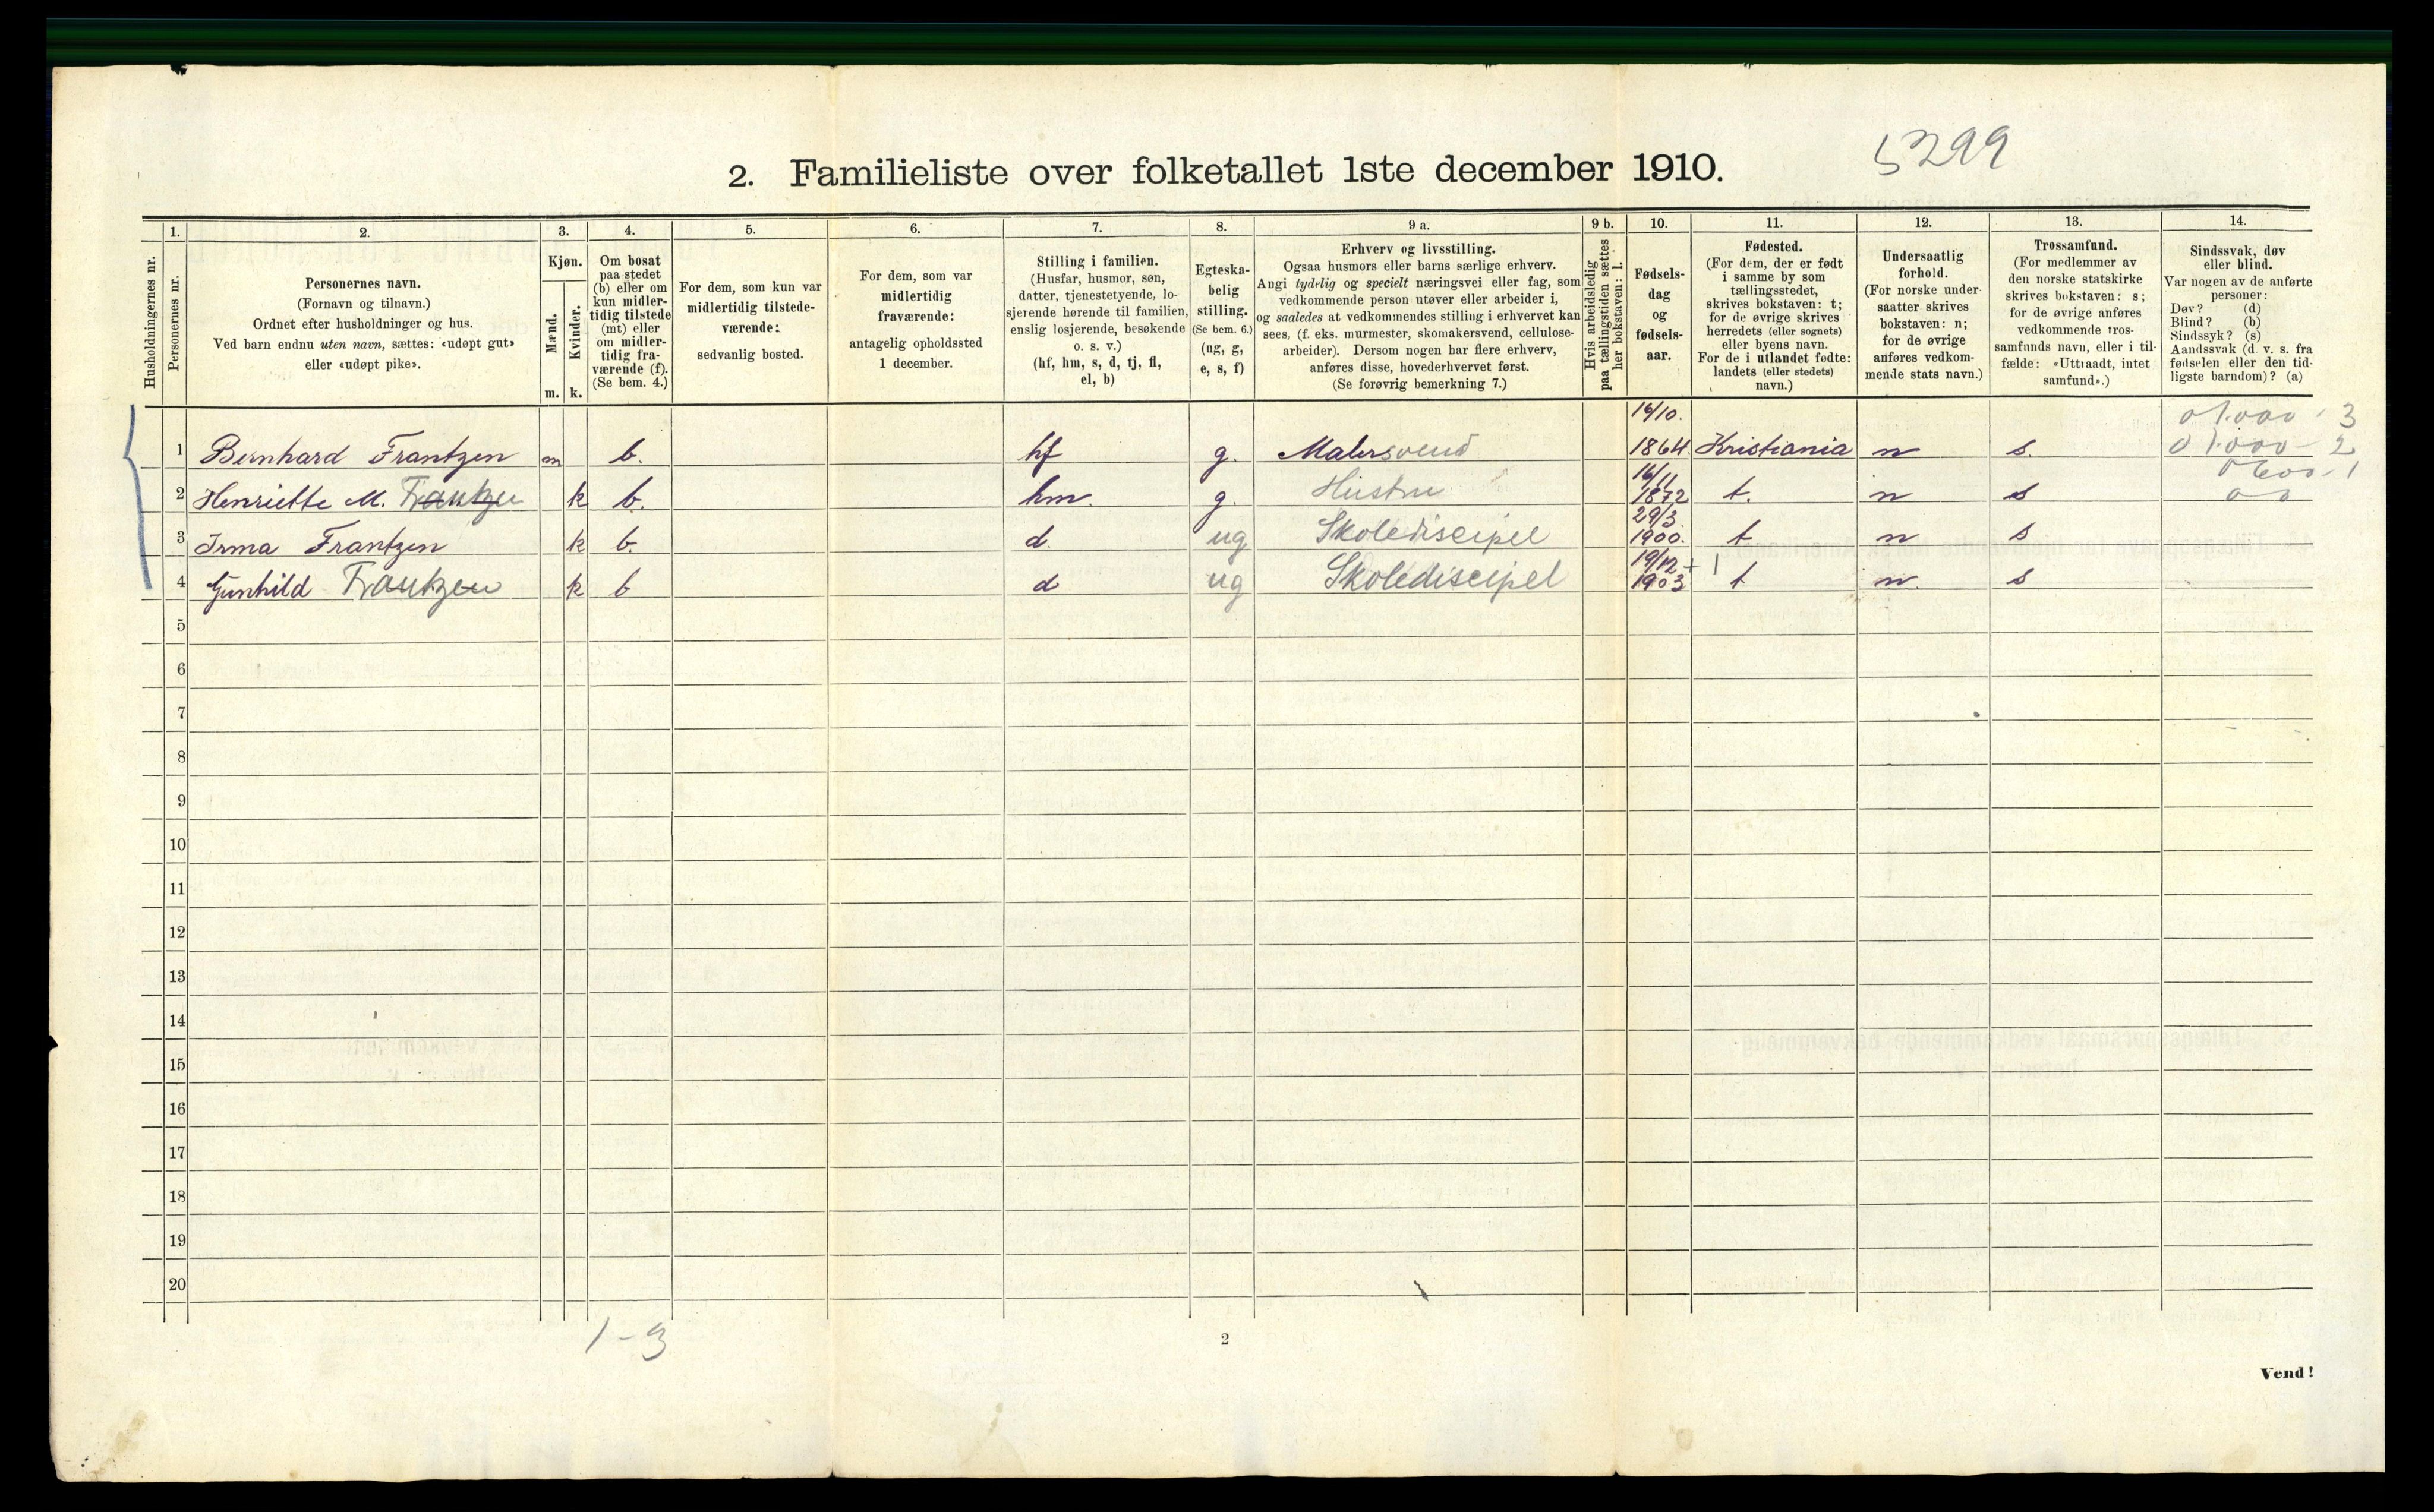 5299
2. Familieliste over folketallet 1ste december 1910.
Husholdningernes nr.
1.
Personernes nr.
2.
Personernes navn.
(Fornavn og tilnavn.)
Ordnet efter husholdninger og hus.
Ved barn endnu uten navn, sættes: «udøpt gut»
eller «udøpt pike».
3.
Kjøn.
Mænd.
Kvinder.
m. k.
4.
Om bosat
paa stedet
(b) eller om
kun midler-
tidig tilstede
(mt) eller
om midler-
tidig fra-
værende (f).
(Se bem. 4.)
5.
For dem, som kun var
midlertidig tilstede-
værende:
sedvanlig bosted.
6.
For dem, som var
midlertidig
fraværende:
antagelig opholdssted
1 december.
7.
Stilling i familien.
(Husfar, husmor, søn,
datter, tjenestetyende, lo-
sjerende hørende til familien,
enslig losjerende, besøkende
o. s. v.)
(hf, hm, s, d, tj, fl,
el, b)
8.
Egteska-
belig
stilling.
(Se bem. 6.)
(ug, g,
e, s, f)
9 a.
Erhverv og livsstilling.
Ogsaa husmors eller barns særlige erhverv.
Angi tydelig og specielt næringsvei eller fag, som
vedkommende person utøver eller arbeider i,
og saaledes at vedkommendes stilling i erhvervet kan
sees, (f. eks. murmester, skomakersvend, cellulose-
arbeider). Dersom nogen har flere erhverv,
anføres disse, hovederhvervet først.
(Se forøvrig bemerkning 7.)
9 b.
Hvis arbeidsledig
paa tællingstiden sættes
her bokstaven: l.
10.
Fødsels-
dag
og
fødsels-
aar.
11.
Fødested.
(For dem, der er født
i samme by som
tællingsstedet,
skrives bokstaven: t;
for de øvrige skrives
herredets (eller sognets)
eller byens navn.
For de i utlandet fødte:
landets (eller stedets)
navn.)
12.
Undersaatlig
forhold.
(For norske under-
saatter skrives
bokstaven: n;
for de øvrige
anføres vedkom-
mende stats navn.)
13.
Trossamfund.
(For medlemmer av
den norske statskirke
skrives bokstaven: s;
for de øvrige anføres
vedkommende tros-
samfunds navn, eller i til-
fælde: «Uttraadt, intet
samfund».)
14.
Sindssvak, døv
eller blind.
Var nogen av de anførte
personer:
Døv? (d)
Blind? (b)
Sindssyk? (s)
Aandssvak (d. v. s. fra
fødselen eller den tid-
ligste barndom)? (a)
1 Bernhard Frantzen m b. hf g. Malersvend 16/10. 1864 Kristiania n s.
2 Henriette M. Frantzen k b. hm. g. Hustru 16/11 1872 t. n s
3 Irma Frantzen k b. d. ug Skolediscipel 29/3. 1900. t n s
4 Gunhild Frantzen k b d ug Skolediscipel 19/12 1903 t n. s
5
6
7
8
9
10
11
12
13
14
15
16
17
18
19
20
1-3
2
Vend!